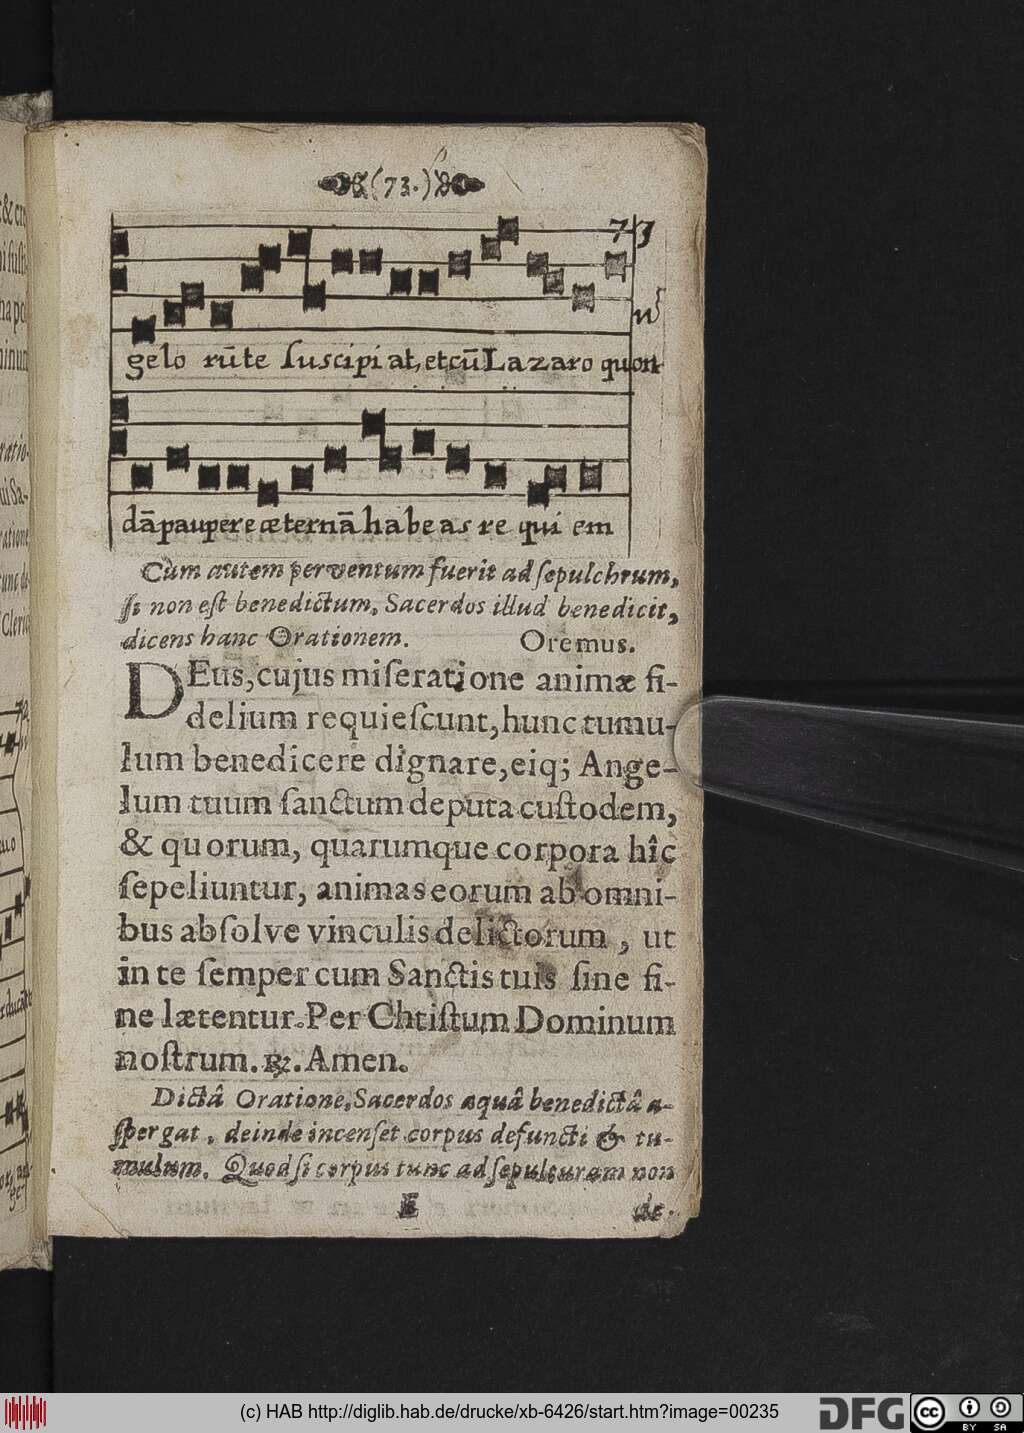 (73.)
73
gelo rūte suscipi at, et cū Lazaro quon
dā paupere æternā habeas re qui em
Cùm autem perventum fuerit ad ſepulchrum,
ſi non eſt benedictum, Sacerdos illud benedicit,
dicens hanc Orationem. Oremus.
DEus, cujus miſeratione animæ fi-
delium requieſcunt, hunc tumu-
lum benedicere dignare, eiq; Ange-
lum tuum ſanctum deputa cuſtodem,
& quorum, quarumque corpora hîc
ſepeliuntur, animas eorum ab omni-
bus abſolve vinculis delictorum, ut
in te ſemper cum Sanctis tuis ſine fi-
ne lætentur. Per Chriſtum Dominum
noſtrum. ℟. Amen.
Dictâ Oratione, Sacerdos aquâ benedictâ a-
ſpergat, deinde incenſet corpus defuncti & tu-
mulum. Quod ſi corpus tunc ad ſepulturam non
E de-
(c) HAB http://diglib.hab.de/drucke/xb-6426/start.htm?image=00235
DFG
cc
BY SA